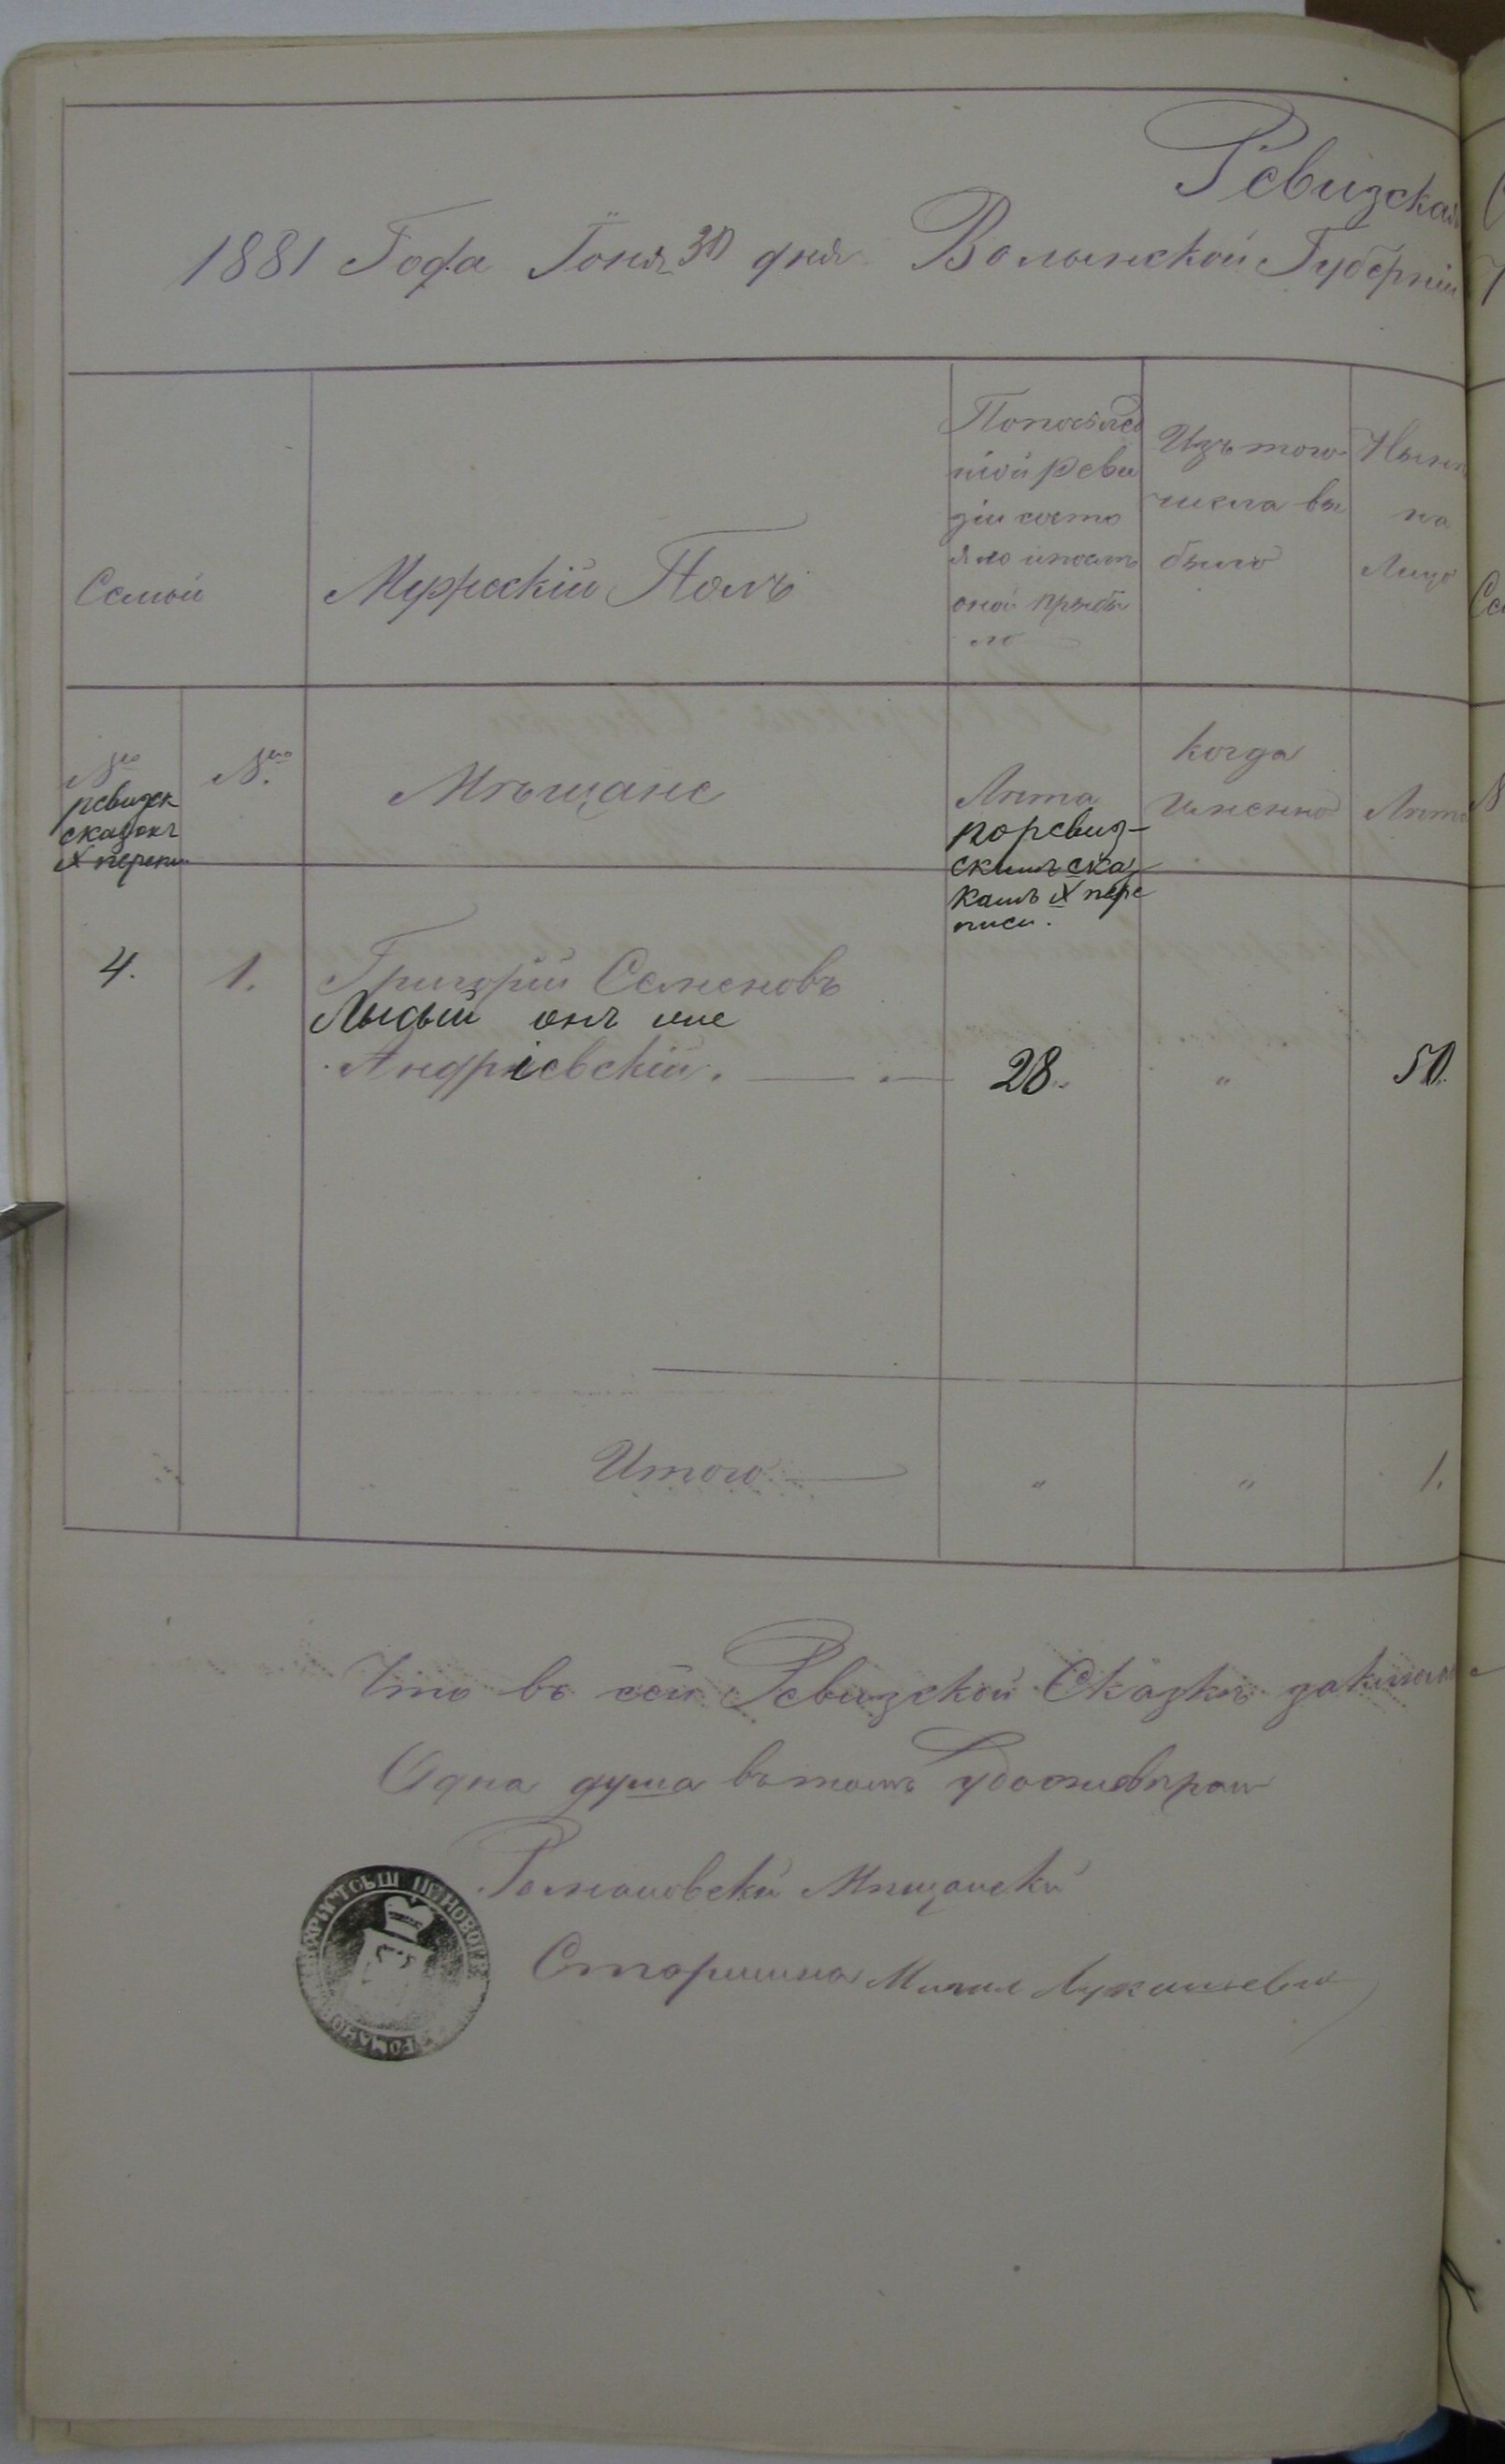 Ревизская
1881 Года Іюня 30 дня Волынской Губерніи
Семьи
Мужескій Полъ
По послѣд
ней реви
зіи состо
яло и послѣ
оной прибы
ло
Изъ того
числа вы
было
Нынѣ
на
Лицо
№
ревизск
сказокъ
X переп
№
Мѣщане
Лѣта
по ревиз-
скимъ сказ
камъ X пере
писи.
когда
именно
Лѣта
4.
1.
Григорій Семеновъ
Лысый онъ же
Андріевскій.
28.
"
50.
Итого
"
"
1.
Что въ сей Ревизской Сказкѣ
Одна душа въ томъ
Романовскій Мѣщанскій
Старшина